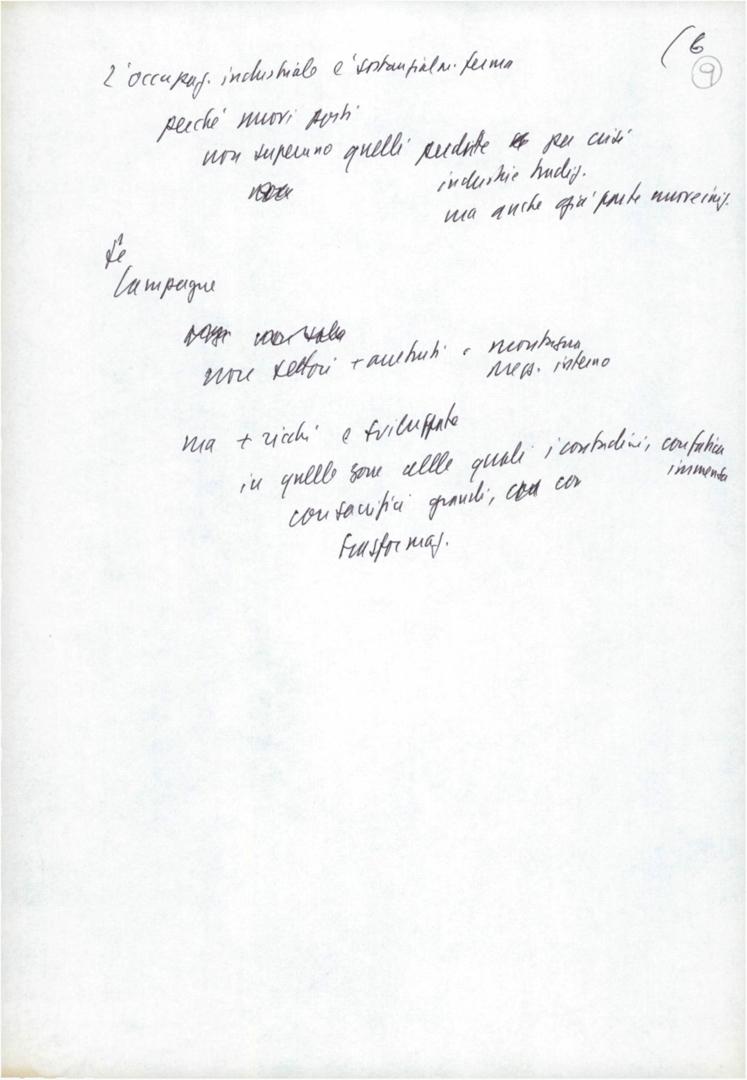 (6
9
L'occupaz. industriale e' sostanzialm. ferma
perché nuovi posti
non superano quelli perdute per crisi
industrie tradiz.
ma anche già parte nuove iniz.
Le
Campagne
non settori + arretrati - montagna
Mezz. interno
ma + ricchi e sviluppate
in quelle zone nelle quali i contadini, con fatica
immensa
con sacrifici grandi, con
trasformaz.